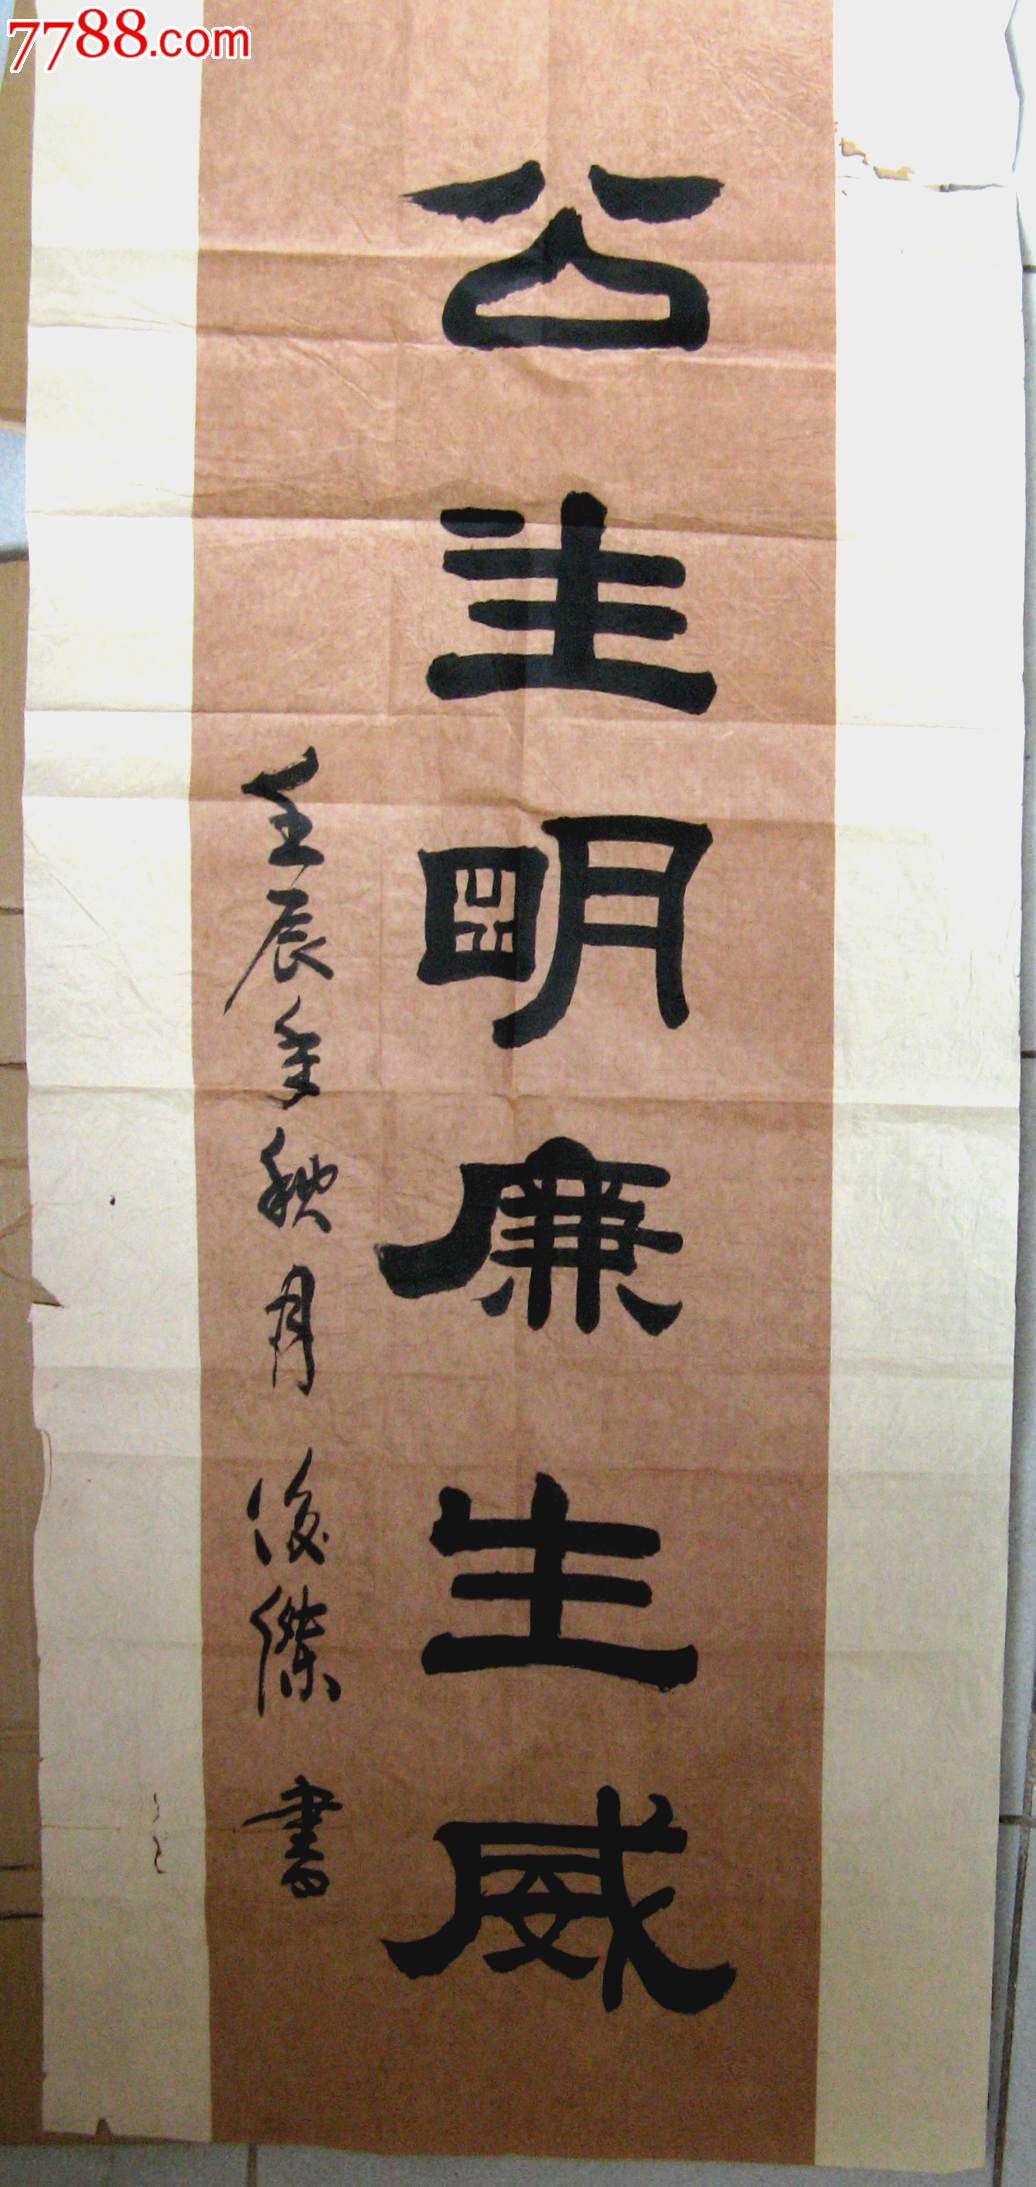 7788.com
公生明廉生威
壬辰年秋月 俊傑 書